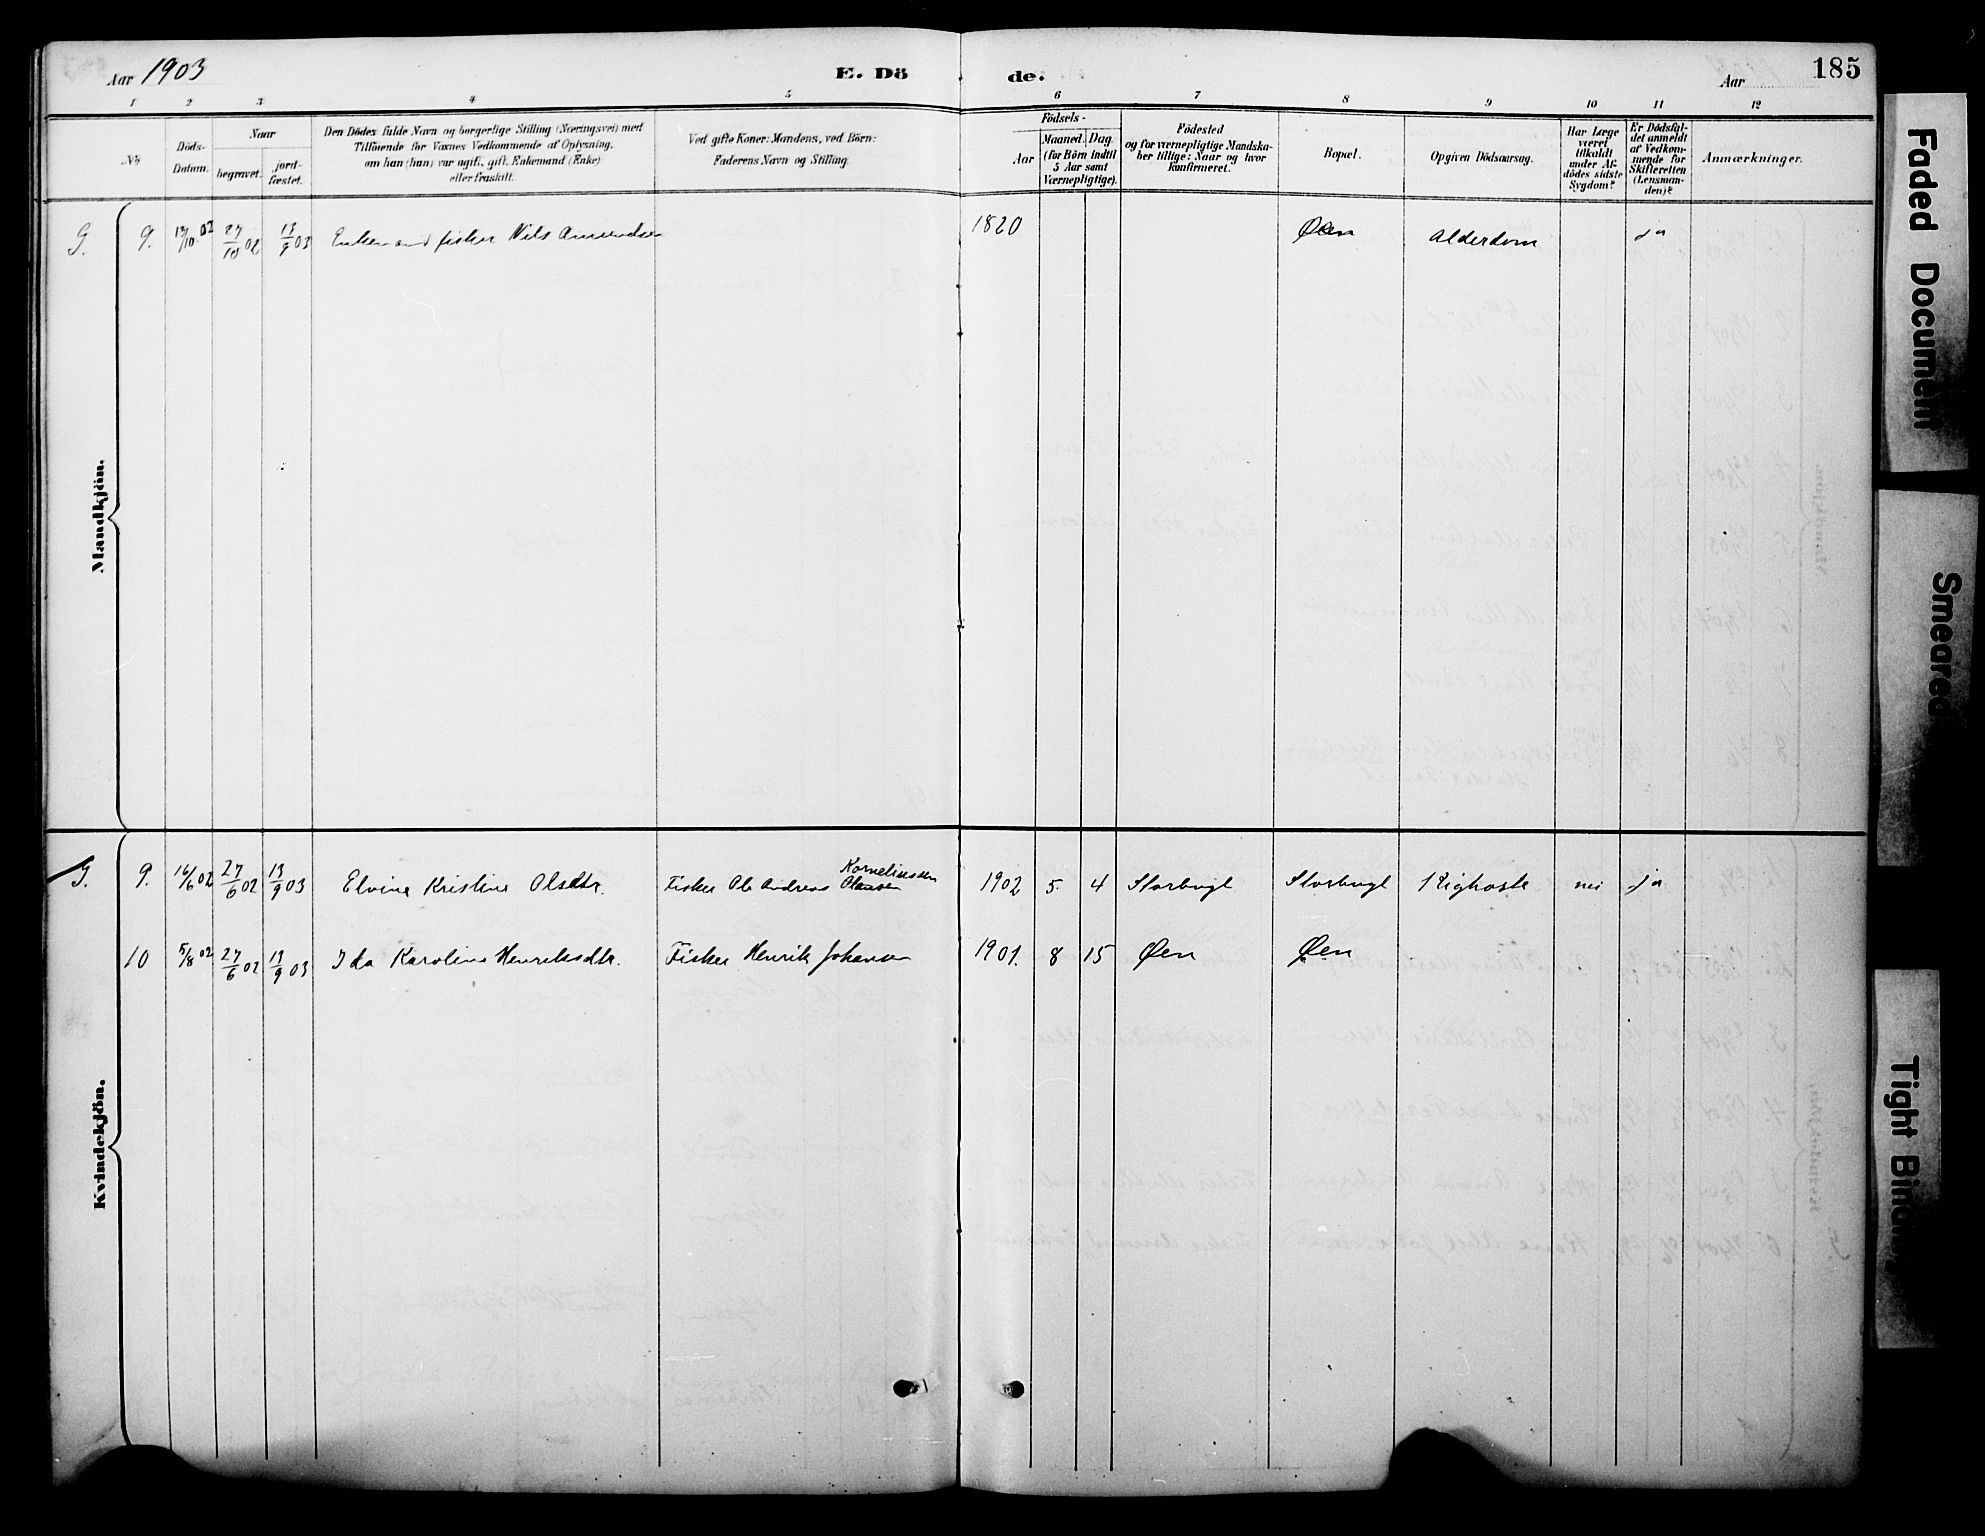 Aar 1903
E. Dö
de.
Aar
185
1 2 3 4 5 6 7 8 9 10 11 12
No
Döds-
Datum.
Naar
begravet.
jord-
fæstet.
Den Dödes fulde Navn og borgerlige Stilling (Næringsvei) med
Tilföiende for Voxnes Vedkommende af Oplysning,
om han (hun) var ugift, gift, Enkemand (Enke)
eller fraskilt.
Ved gifte Koner: Mandens, ved Börn:
Faderens Navn og Stilling.
Födsels-
Aar
Maaned. Dag.
(for Börn indtil
5 Aar samt
Værnepligtige).
Födested
og for værnepligtige Mandska-
ber tillige: Naar og hvor
konfirmeret.
Bopæl.
Opgiven Dödsaarsag.
Har Læge
været
tilkaldt
under Af-
dödes sidste
Sygdom?
Er Dödsfal-
det anmeldt
af Vedkom-
mende for
Skifteretten
(Lensman-
den)?
Anmærkninger.
Mandkjön.
G. 9. 02 27/10 02 13/9 03 Enkemand fisker Nils Amundsen 1820 Øen Alderdom ja
Kvindekjön.
G. 9. 16/6 02 27/6 02 13/9 03 Elvine Kristine Olsdtr. Fisker Ole Andreas Korneliussen
Olausen 1902 5. 4 Storbugt Storbugt Kighoste nei ja
10 5/8 02 27/6 02 13/9 03 Ida Karoline Henriksdtr. Fisker Henrik Johansen 1901. 8 15 Øen Øen
Faded Document
Smeared
Tight Binding